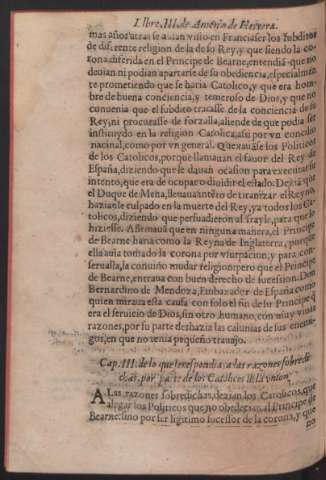 Libro. III. de Antonio de Herrera.
mas años atras se auian visto en Francia ser los subditos
de diferente religion de la de su Rey, y que siendo la co-
rona diferida en el Principe de Bearne, entendia que no
deuian ni podian apartarse de su obediencia, especialmen-
te prometiendo que se haria Catolico, y que era hom-
bre de buena conciencia, y temeroso de Dios, y que no
conuenia que el subdito tratasse de la conciencia de su
Rey, ni procurasse de forzalla, aliende de que podia ser
instruydo en la religion Catolica, assi por vn concilio
nacional, como por vn general. Quexauãse los Politicos
de los Catolicos, porque llamauan el fauor del Rey de
España, diziendo que le dauan ocasion para executar su
intento, que era de ocupar o diuidir el estado. Dezia que
el Duque de Mena, lleuaua intẽto de tiranizar el Reyno,
hazianle culpado en la muerte del Rey, y a todos los Ca-
tolicos, diziendo que persuadieron al frayle, para que lo
hiziesse. Afirmauã que en ninguna manera, el Principe
de Bearne haria como la Reyna de Inglaterra, porque
ella auia tomado la corona por vsurpacion, y para con-
seruarsela, la conuino mudar religion, pero que el Principe
de Bearne, entraua con buen derecho de sucesion. Don
Bernardino de Mendoza, Embaxador de España como
quien miraua esta causa con solo el fin de su Principe, q̃
era el seruicio de Dios, sin otro humano, con muy viuas
razones, por su parte deshazia las calunias de sus enemi-
gos, en que no tenia pequeño trauajo.
Cap. III. de lo que se respondia a las razones sobredi-
chas, por parte de los Catolicos de la vnion,
A Las razones sobredichas, dezian los Catolicos, que
alegar los Politicos que no obedecian al Principe de
Bearne sino por ser ligitimo sucessor de la corona, y que